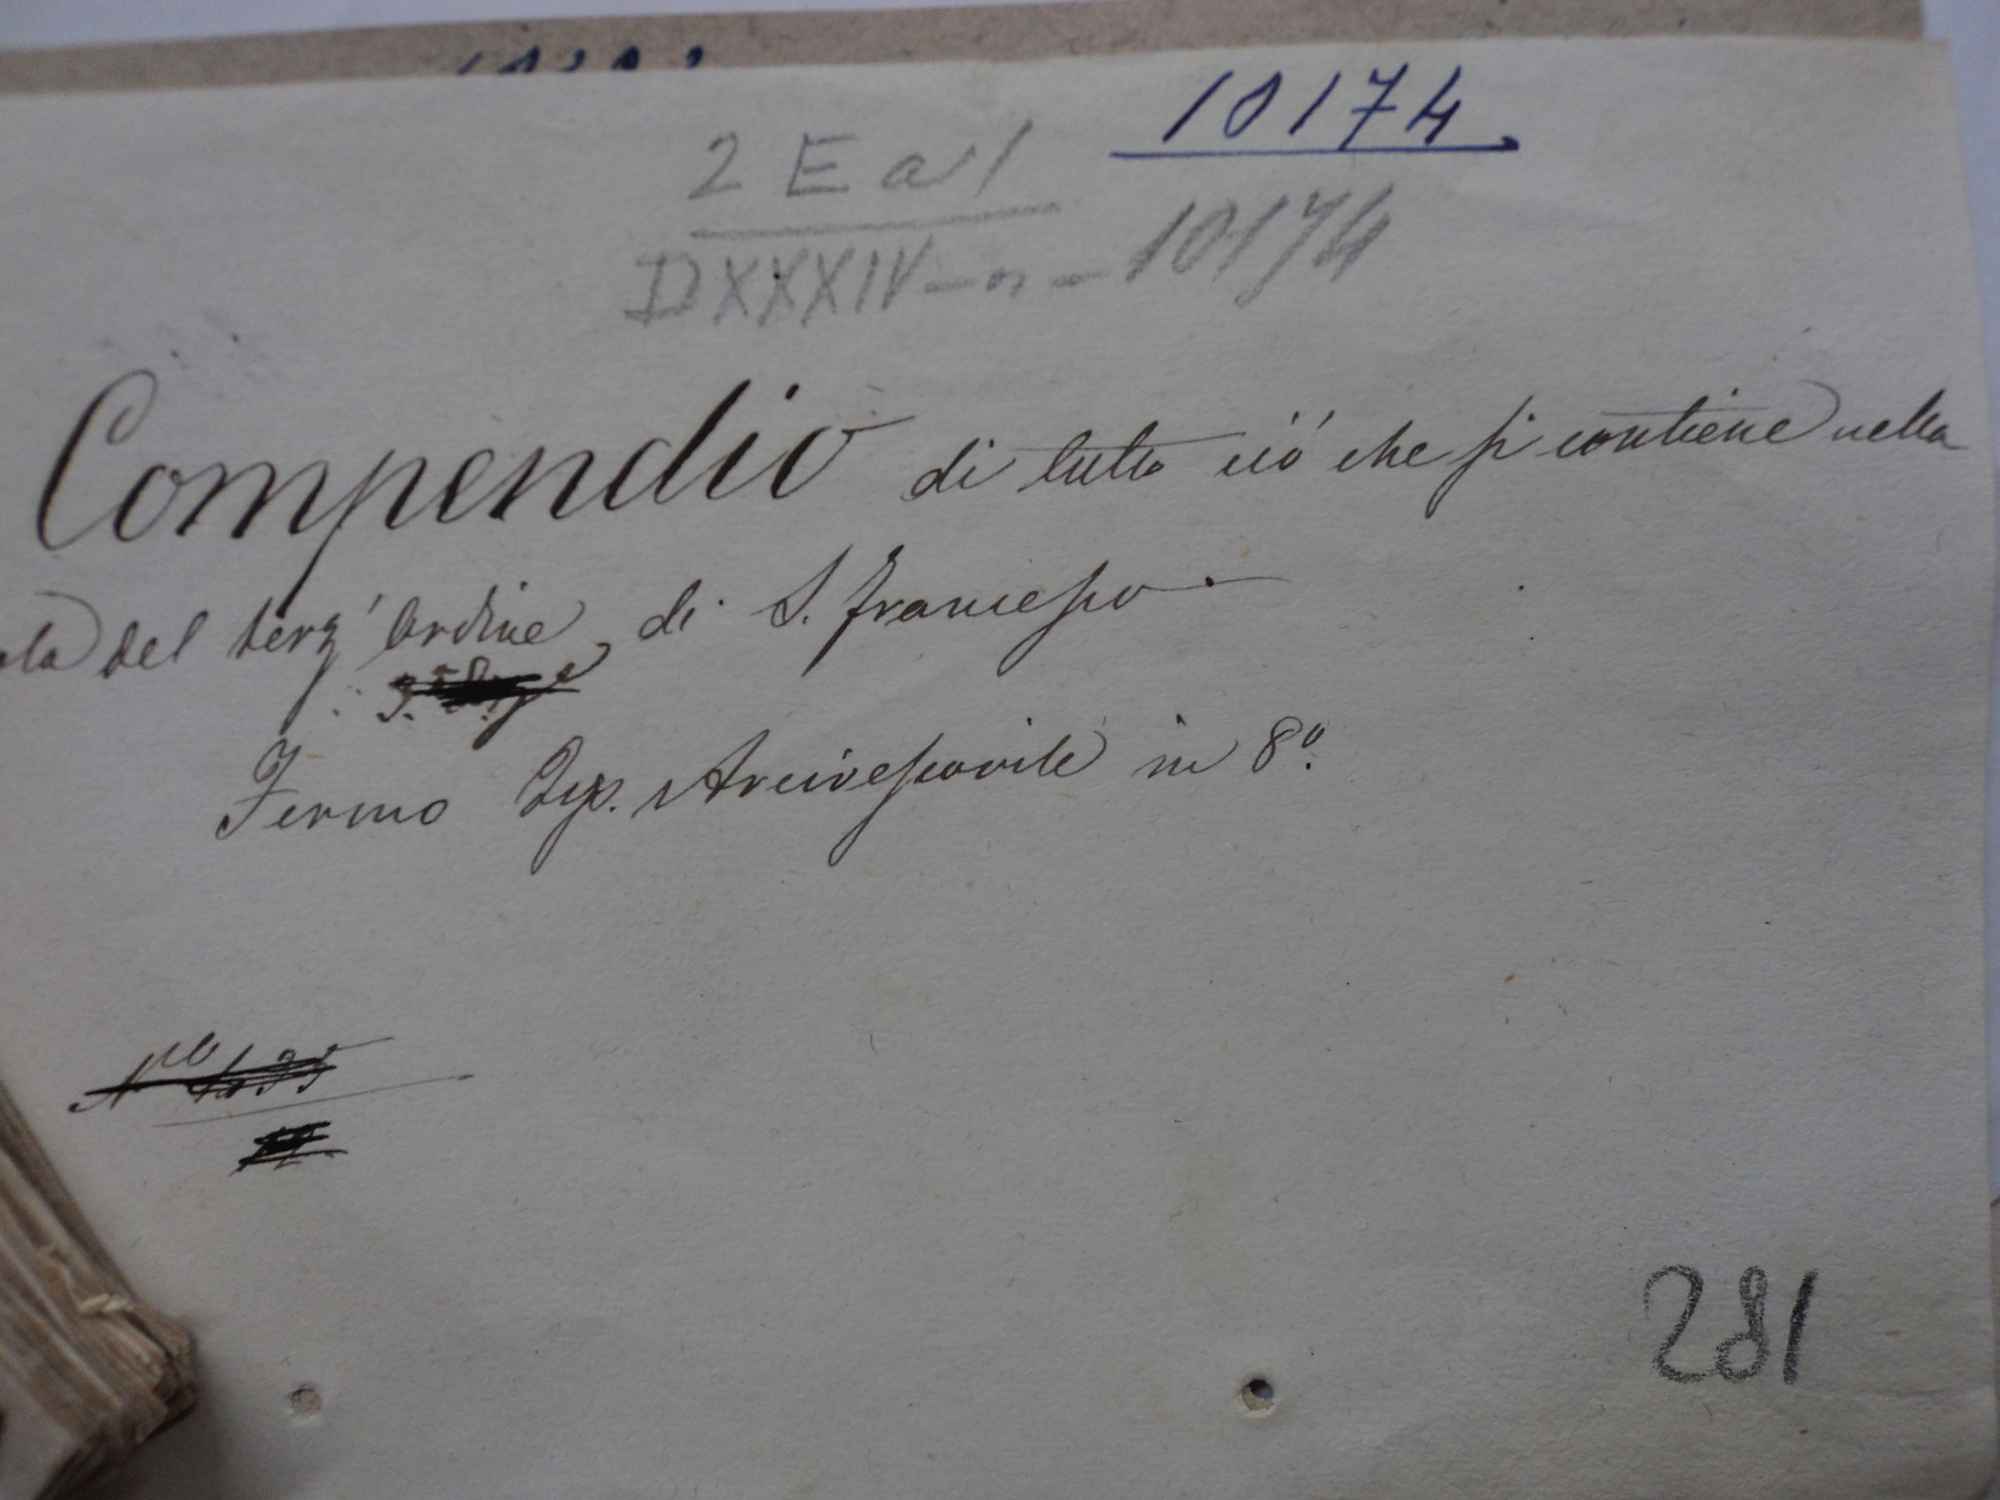 10174
2 E a 1
DXXXIV – n – 10174
Compendio di tutto ciò che si contiene nella
del terz' Ordine di S. Francesco
Fermo Typ. Arcivescovile in 8º.
281